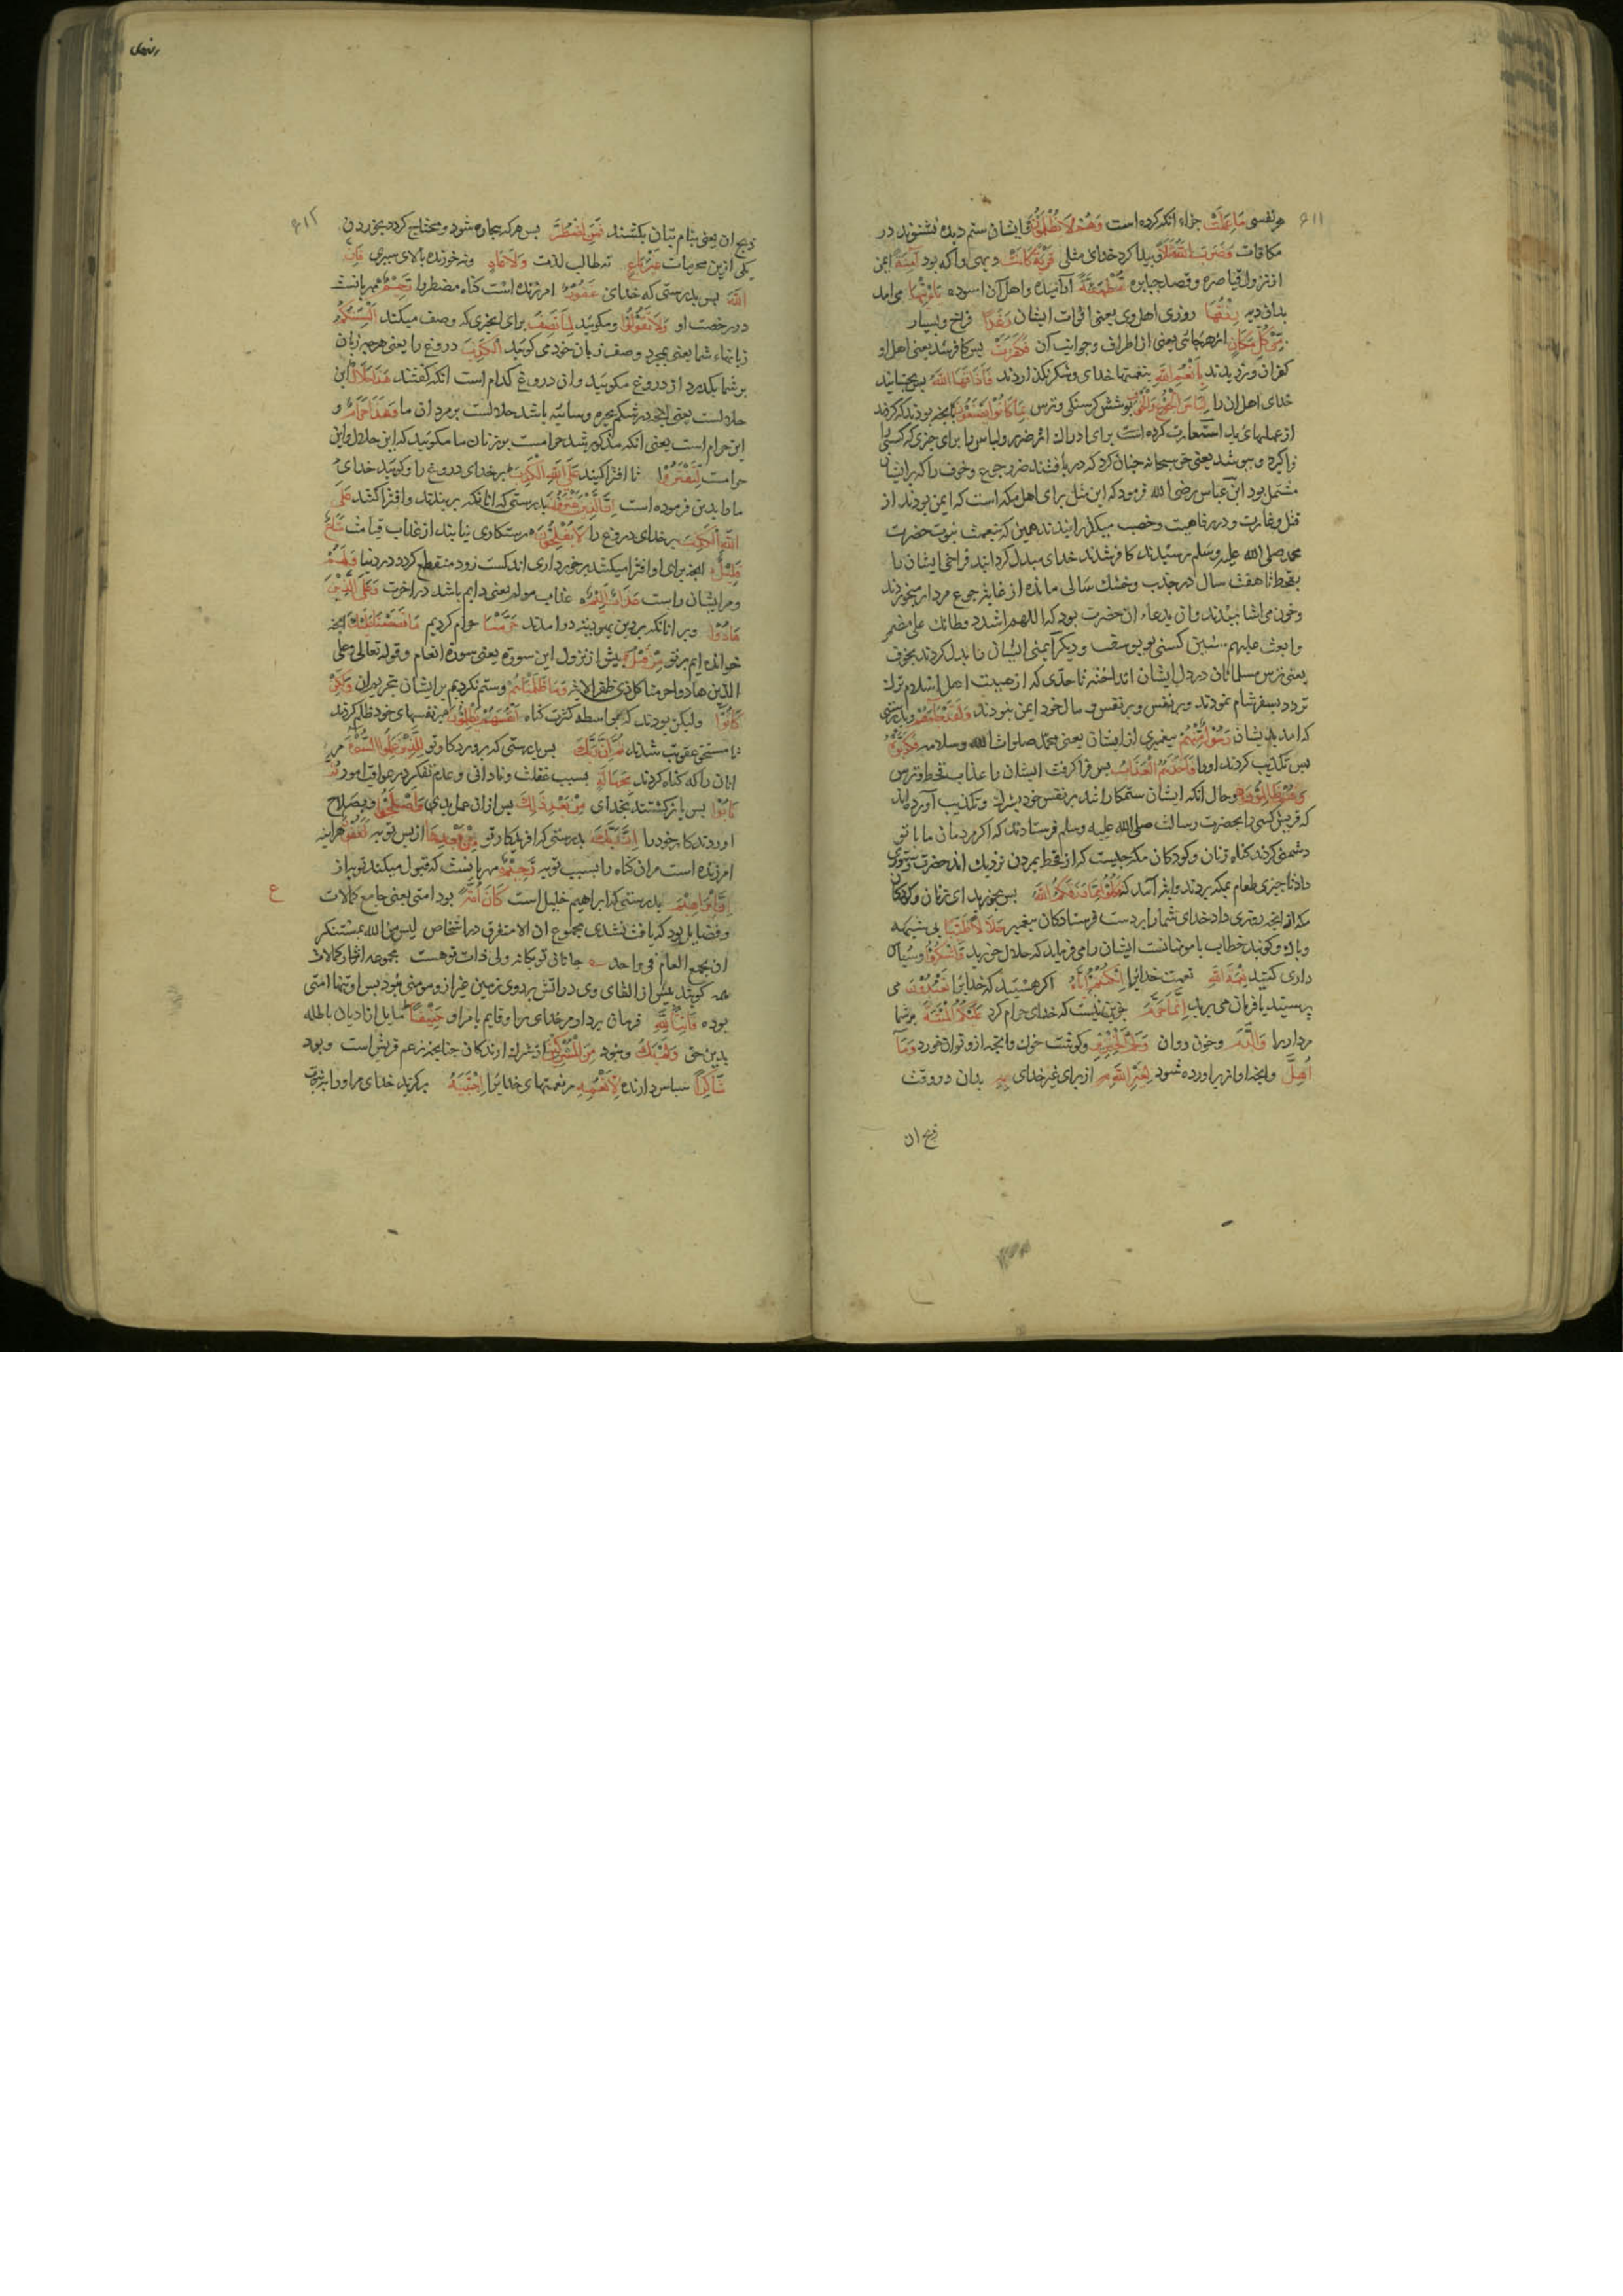 ۶۱۱
هر نفسی مَا عَمِلَتْ جزاء آنکه کرده است وَهُمْ لَا يُظْلَمُونَ و ایشان ستم دیده نشنوند در
مکافات وَضَرَبَ اللَّهُ مَثَلًا و پیدا کرد خدای مثلی قَرْيَةً كَانَتْ دیهی را که بود آمِنَةً ایمن
از نزول قیاصره و قصد جبابره مُطْمَئِنَّةً آرامیده و اهل آن اسوده يَأْتِيهَا می امد
بدان دیه رِزْقُهَا روزی اهل وی یعنی اقوات ایشان رَغَدًا فراخ و بسیار
مِنْ كُلِّ مَكَانٍ از هر جائی یعنی از اطراف و جوانب آن فَكَفَرَتْ پس کافر شد یعنی اهل او
کفران ورزیدند بِأَنْعُمِ اللَّهِ بنعمتها خدای و شکر نکذاردند فَأَذَاقَهَا اللَّهُ پس بچشانید
خدای اهل ان را لِبَاسَ الْجُوعِ وَالْخَوْفِ پوشش کرسنکی و ترس بِمَا كَانُوا يَصْنَعُونَ بانچه بودند که کردند
از عملهای بد استعارت کرده است برای ادراک اثر ضرر و لباس را برای چیزی که کسی را
فرا کیرد و بپوشد یعنی حق سبحانه چنان کرد که دریافتند ضرر جوع و خوف را که بر ایشان
مشتمل بود ابن عباس رضی الله فرمود که این مثل برای اهل مکه است که ایمن بودند از
قتل و غارت و در رفاهیت و خصب میکذرانیدند همین که ببعثت بنوت حضرت
محمد صلی الله علیه وسلم رسیدند کافر شدند خدای مبدل کردانید فراخی ایشان را
بقحط تا هفت سال در جدب و خشک سالی مانده از غایه جوع مردار میخوردند
و خون می اشامیدند و ان بدعاء ان حضرت بود که اللهم اشدد وطائك علی مضر
وابعث علیهم سنین کسنی یوسف و دیکر ایمنی ایشان را بدل کردند بخوف
یعنی ترس مسلمانان در دل ایشان انداخته تا حدی که از هیبت اهل اسلام ترک
تردد بسفر شام نمودند و بر نفس و بر نفس و مال خود ایمن نبودند وَلَقَدْ جَاءَهُمْ و بدرستی
که امد بدیشان رَسُولٌ مِنْهُمْ پیغمبری از ایشان یعنی محمد صلوات الله وسلامه فَكَذَّبُوهُ
پس تکذیب کردند او را فَأَخَذَهُمُ الْعَذَابُ پس فرا کرفت ایشان را عذاب قحط و ترس
وَهُمْ ظَالِمُونَ و حال انکه ایشان ستمکاران اند بر نفس خود بشرک و تکذیب آورده اند
که قریش کسی را بحضرت رسالت صلی الله علیه وسلم فرستادند که اکر مردمان ما با تو
دشمنی کردند کناه زنان و کودکان مکه چیست که از قحط بمردن نزدیک اند حضرت دستوری
داد تا چیزی طعام بمکه بردند و ایة آمد که فَكُلُوا مِمَّا رَزَقَكُمُ اللَّهُ پس بخورید ای زنان و کودکان
مکه از انچه روزی داد خدای شما را بر دست فرستادکان پیغمبر حَلَالًا طَيِّبًا بی شبهه
و پاک و کویند خطاب با مومنانست ایشان را می فرماید که حلال خورید وَاشْكُرُوا و سپاس
داری کنید نِعْمَةَ اللَّهِ نعمت خدایرا إِنْ كُنْتُمْ إِيَّاهُ اکر هستید که خدایرا تَعْبُدُونَ می
پرستید یا فرمان می برید إِنَّمَا حَرَّمَ جزین نیست که خدای حرام کرد عَلَيْكُمُ الْمَيْتَةَ بر شما
مردار را وَالدَّمَ و خون روان وَلَحْمَ الْخِنْزِيرِ و کوشت خوک و انچه ازو توان خورد وَمَا
أُهِلَّ و انچه اواز براورده شود لِغَيْرِ اللَّهِ از برای غیر خدای بِهِ بدان در وقت
ذبح ان
۶۱۲
ذبح ان یعنی بنام بتان بکشند فَمَنِ اضْطُرَّ پس هر که بیچاره شود و محتاج کردد بخوردن
یکی ازین محرمات غَيْرَ بَاغٍ نه طالب لذت وَلَا عَادٍ ونه خورنده بالای سیری فَإِنَّ
اللَّهَ پس بدرستی که خدای غَفُورٌ امرزنده است کناه مضطر را رَحِيمٌ مهربانست
در رخصت او وَلَا تَقُولُوا و مکویید لِمَا تَصِفُ برای انچیزی که وصف میکند أَلْسِنَتُكُمُ
زبانهاء شما یعنی بمجرد وصف زبان خود می کویید الْكَذِبَ دروغ را یعنی هر چه زبان
بر شما بکذرد از دروغ مکویید و ان دروغ کدام است انکه کفتند هَذَا حَلَالٌ این
حلالست یعنی انچه در شکم بحیره و سائبه باشد حلالست بر مردان ما وَهَذَا حَرَامٌ و
این حرام است یعنی انکه مذکور شد حرامست بر زنان ما مکویید که این حلال و این
حرامست لِتَفْتَرُوا تا افترا کنید عَلَى اللَّهِ الْكَذِبَ بر خدای دروغ را و کویید خدای
ما را بدین فرموده است إِنَّ الَّذِينَ يَفْتَرُونَ بدرستی که انانکه بربندند و افترا کنند عَلَى
اللَّهِ الْكَذِبَ بر خدای دروغ را لَا يُفْلِحُونَ رستکاری نیابند از عذاب قیامت مَتَاعٌ
قَلِيلٌ انچه برای او افترا میکنند برخورداری اندکست زود منقطع کردد در دنیا وَلَهُمْ
و مر ایشان راست عَذَابٌ أَلِيمٌ عذاب مولم یعنی دایم باشد در اخرت وَعَلَى الَّذِينَ
هَادُوا و بر انانکه بر دین یهودیه در امدند حَرَّمْنَا حرام کردیم مَا قَصَصْنَا عَلَيْكَ انچه
خوانده ایم بر تو مِنْ قَبْلُ پیش از نزول این سوره یعنی سورة انعام و قوله تعالی وعلی
الذین هادوا حرمنا کل ذی ظفر الایه وَمَا ظَلَمْنَاهُمْ و ستم نکردیم بر ایشان بتحریم ان وَلَكِنْ
كَانُوا ولیکن بودند که بواسطه کثرت کناه أَنْفُسَهُمْ يَظْلِمُونَ بر نفسهای خود ظلم کردند
تا مستحق عقوبت شدند ثُمَّ إِنَّ رَبَّكَ پس بدرستی که پروردکار تو لِلَّذِينَ عَمِلُوا السُّوءَ مر
انان را که کناه کردند بِجَهَالَةٍ بسبب غفلت و نادانی و عدم تفکر در عواقب امور ثُمَّ
تَابُوا پس باز کشتند بخدای مِنْ بَعْدِ ذَلِكَ پس از ان عمل بدی وَأَصْلَحُوا و بصلاح
اوردند کار خود را إِنَّ رَبَّكَ بدرستی که افریدکار تو مِنْ بَعْدِهَا از پس توبه لَغَفُورٌ هراینه
امرزنده است مر ان کناه را بسبب توبه رَحِيمٌ مهربانست که قبول میکند توبه از
إِنَّ إِبْرَاهِيمَ بدرستی که ابراهیم خلیل است كَانَ أُمَّةً بود امتی یعنی جامع کمالات
ع
و فضایل بود که یافت نشدی مجموع ان الا متفرق در اشخاص لیس من الله بمستنکر
ان یجمع العالم فی واحد جانا تو یکانه ولی ذات تو هست مجموعه اثار کمالات
همه کویند پیش از القای وی در اتش بر روی زمین غیر از و مومنی نبود پس او تنها امتی
بوده قَانِتًا لِلَّهِ فرمان بردار مر خدای را و قایم بامر او حَنِيفًا مایل از ادیان باطله
بدین حق وَلَمْ يَكُ و نبود مِنَ الْمُشْرِكِينَ از شرک ارندکان چنانچه زعم قریش است و بود
شَاكِرًا سپاس دارنده لِأَنْعُمِهِ مر نعمتهای خدایرا اجْتَبَاهُ برکزید خدای مر او را